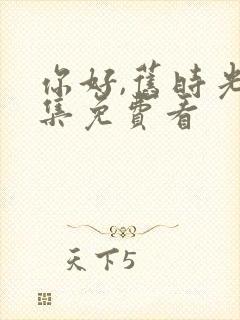 你好,舊時光
集免費看
天下5